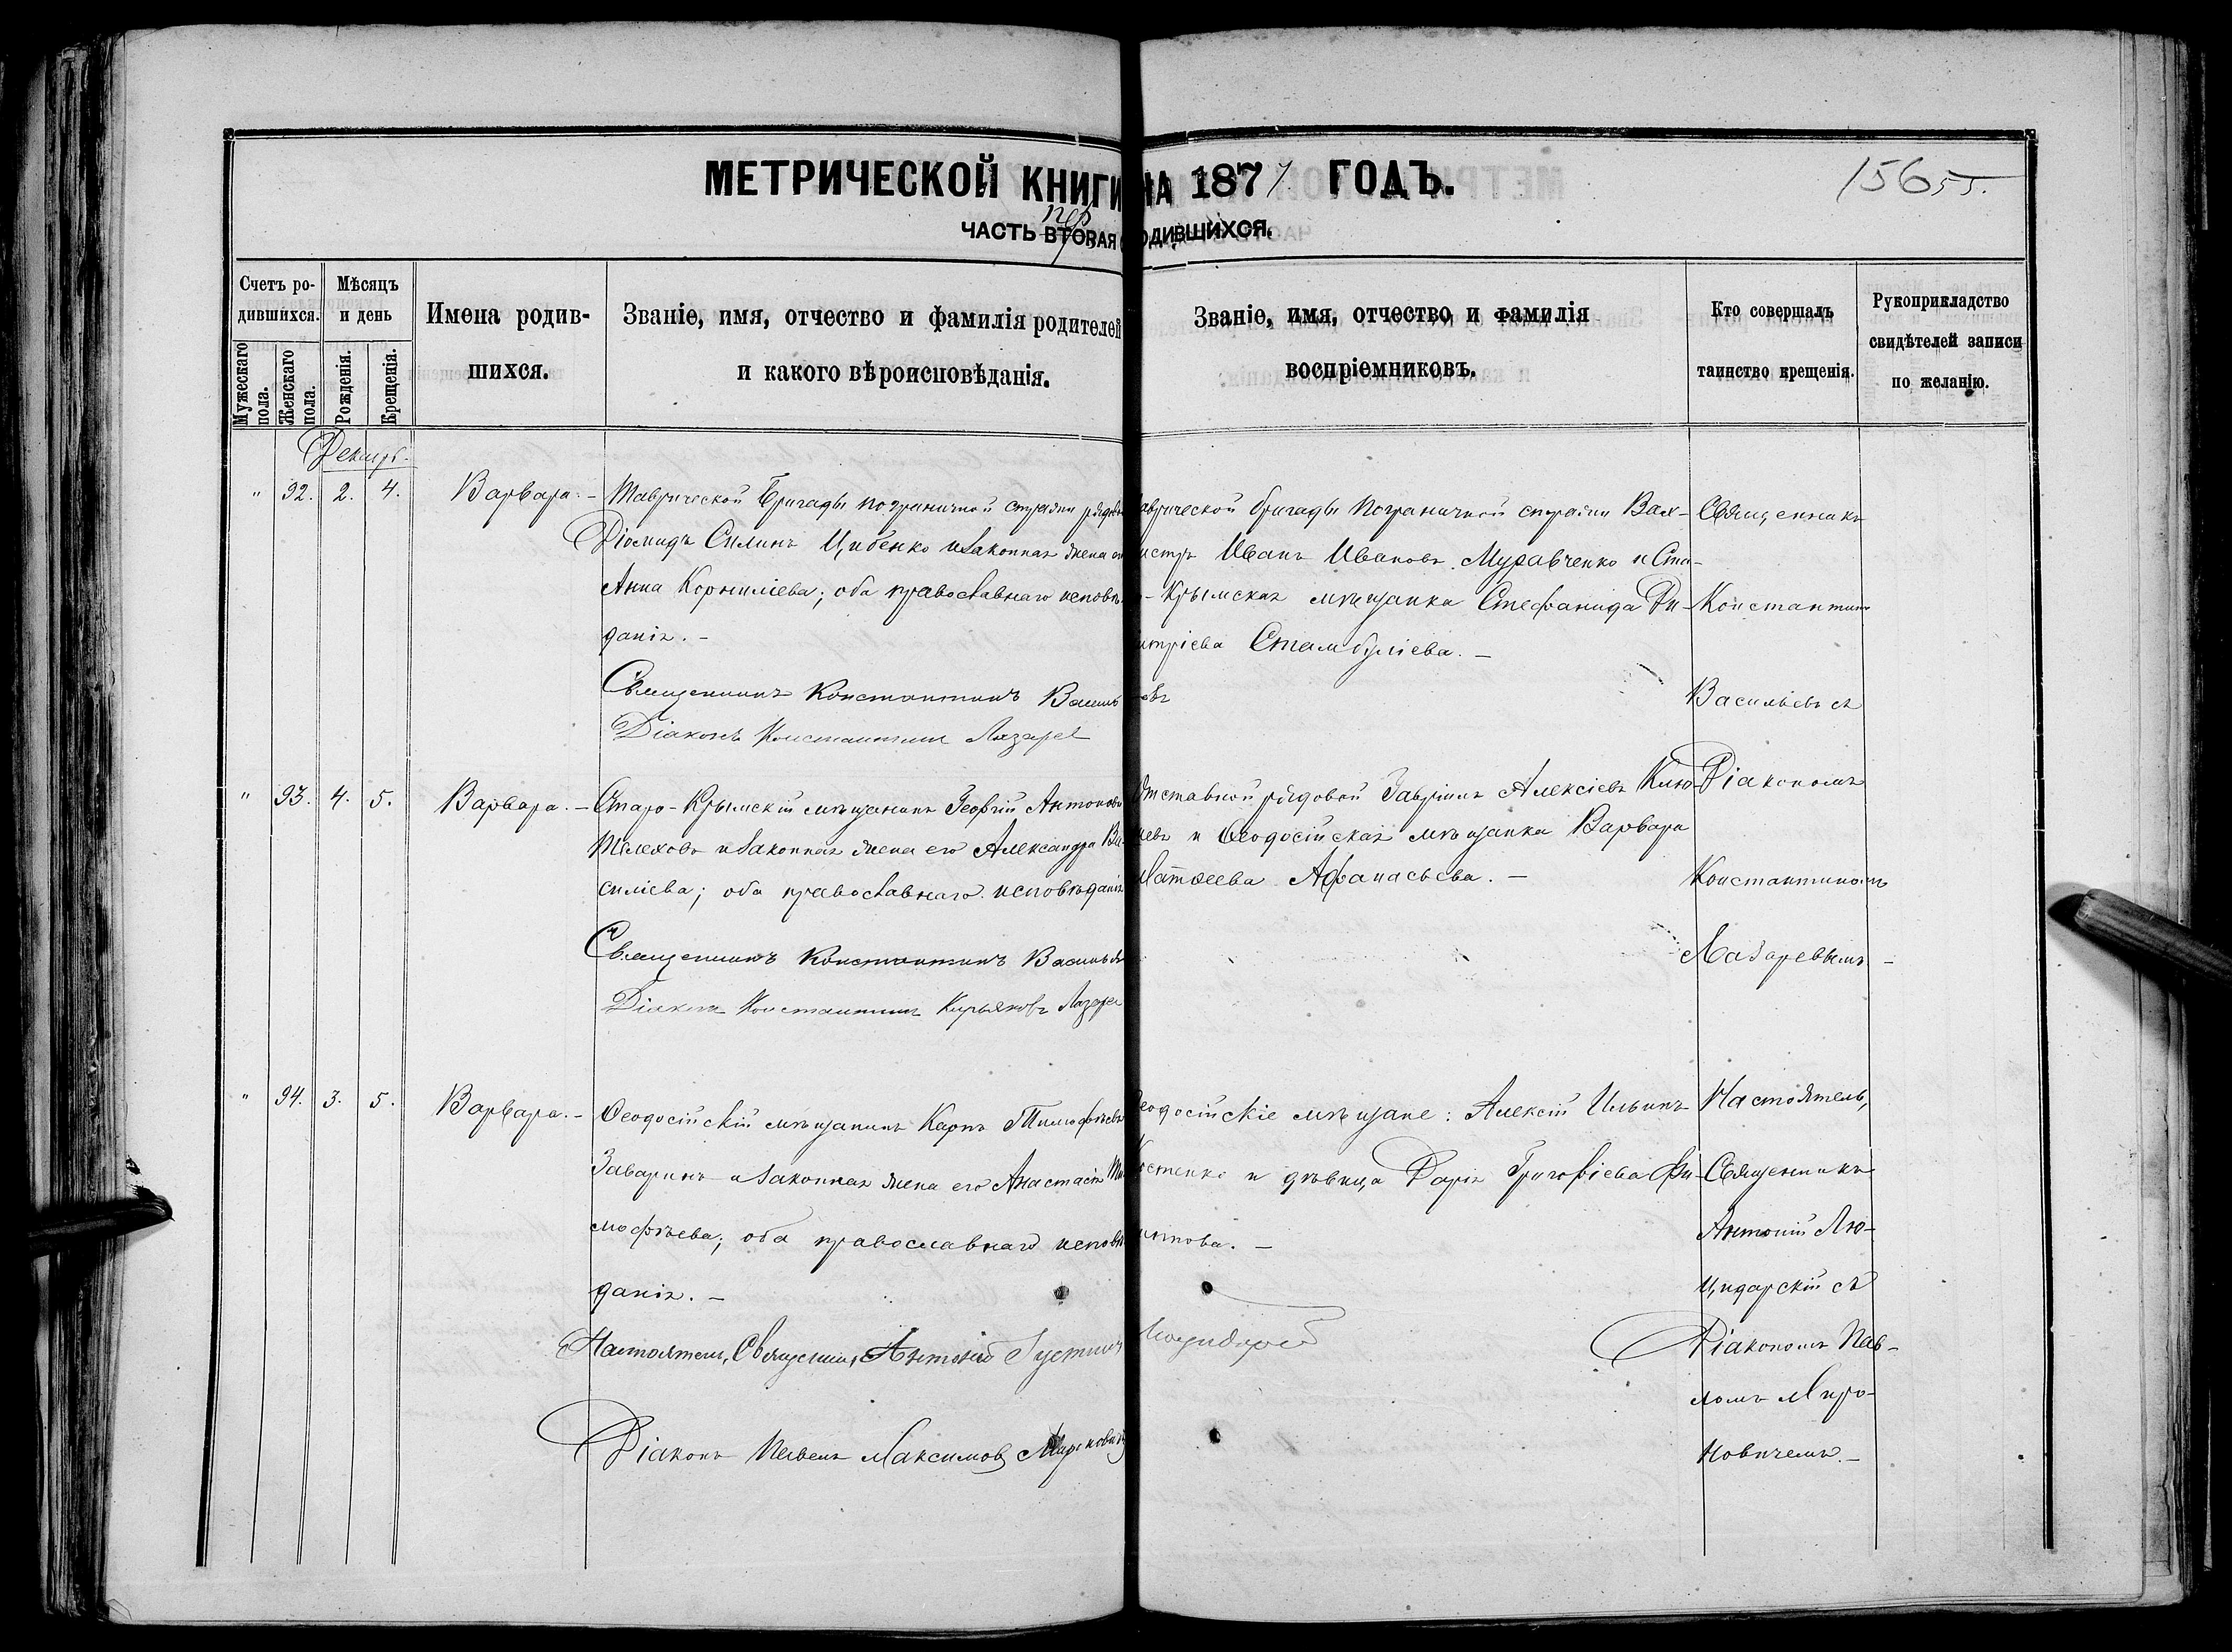 МЕТРИЧЕСКОЙ КНИГИ НА 1877 ГОДЪ.
ЧАСТЬ ВТОРАЯ РОДИВШИХСЯ.
Счетъ родившихся.
Мужескаго пола.
Женскаго пола.
Мѣсяцъ и день
Рожденія.
Крещенія.
Имена родив-
шихся.
Званіе, имя, отчество и фамилія родителей
и какого вѣроисповѣданія.
Званіе, имя, отчество и фамилія
воспріемниковъ.
Кто совершалъ
таинство крещенія.
Рукоприкладство
свидѣтелей записи
по желанію.
Декабр.
" 92. 2. 4. Варвара. –
Таврической Бригады пограничной стражи рядов
Діомидъ Силинъ Цибенко и законная жена его
Анна Корнилiева; оба православнаго исповѣ-
данія. –
Священникъ Константинъ Василь
Діаконъ Константинъ Лазарев
аврической бригады Пограничной стражи Вах-
истръ Иванъ Ивановъ Муравченко и Ста-
-Крымская мѣщанка Стефанида Ди-
итріева Стамбулiева. –
евъ
Священникъ
Константинъ
Васильевъ съ
" 93. 4. 5. Варвара. –
Старо-Крымскій мѣщанинъ Георгій Антоновъ
Телеховъ и законная жена его Александра Ва-
силіева; оба православнаго исповѣданія
Священникъ Константинъ Васильев
Діаконъ Константинъ Кирьяковъ Лазаре
Отставной рядовой Гавріилъ Алексіевъ Клю-
евъ и Ѳеодосійская мѣщанка Варвара
Матѳеева Афанасьева. –
Діакономъ
Константиномъ
Лазаревымъ –
" 94. 3. 5. Варвара. –
Ѳеодосійскій мѣщанинъ Карпъ Тимофѣевъ
Заваринъ и законная жена его Анастасія Ти-
мофѣева; оба православнаго исповѣ
данія. –
Настоятель, Священникъ Антоній Іустинъ
Діаконъ Павелъ Максимовъ Миронович
еодосійскіе мѣщане: Алексій Ильинъ
Костенко и дѣвица Дарія Григоріева Фи-
Настоятель,
Священникъ
Антоній Лю-
цидарскій съ
Діакономъ Пав-
ломъ Миро-
новичемъ. –